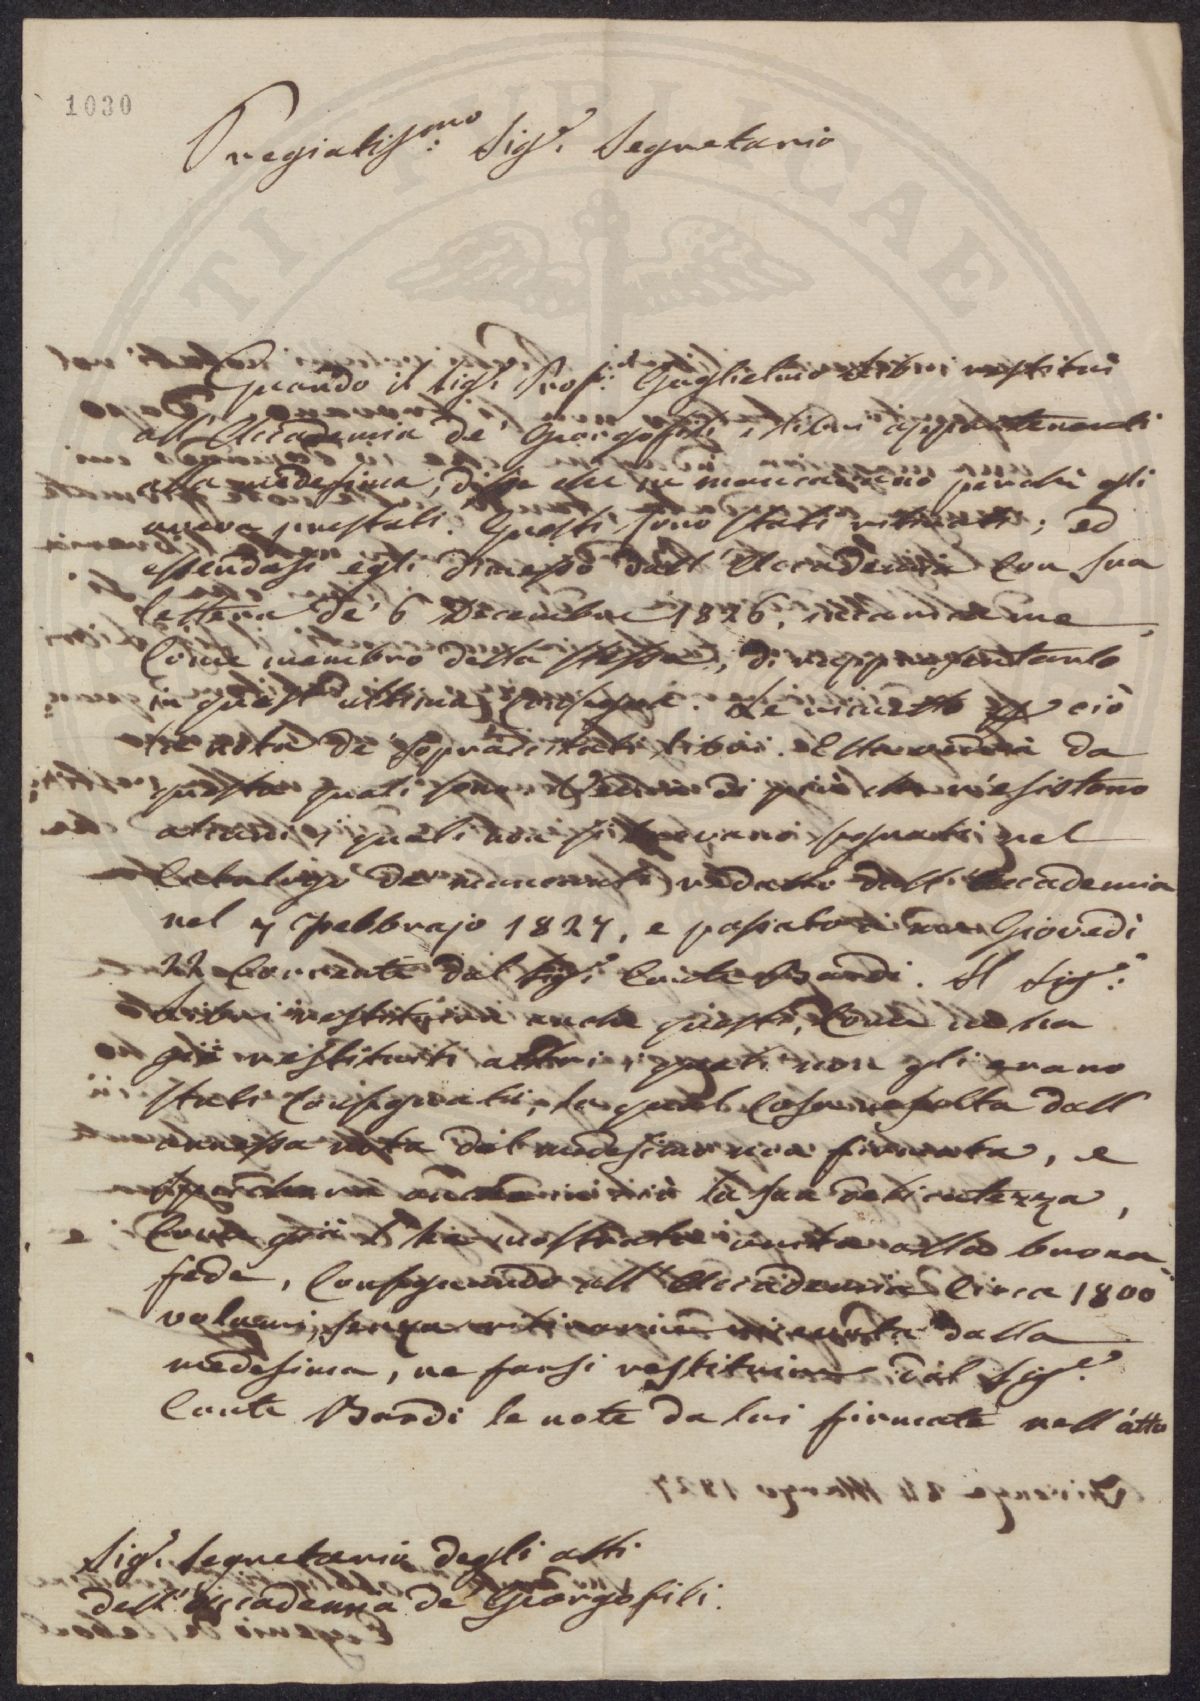 1030
Pregiatiss:mo Sig.r Segretario
Quando il Sig.r Prof.r Guglielmo Libri restituì
all'Accademia de' Georgofili i libri appartenenti
alla medesima, disse che ne mancavano perchè gli
aveva prestati. Questi sono stati ritirati; ed
essendosi egli dimesso dall'Accademia con sua
lettera de' 6 Decembre 1826, incaricò me
come membro della stessa, di rappresentarlo
in quest'ultima consegna. Le rimetto per ciò
la nota de' sopradetti libri. Ella vedrà da
questa quali sono. Vedrà di più che n'esistono
alcuni i quali non si trovano segnati nel
Catalogo de' mancanti redatto dall'Accademia
nel 7 Febbrajo 1827, e passato a me Giovedì
22 Corrente dal Sig.r Conte Bardi. Il Sig.r
Libri restituisce anche questi, come ne ha
già restituiti altri i quali non gli erano
stati consegnati, la qual cosa risulta dall
annessa nota dal medesimo non firmata, e
la sua delicatezza,
come già l'ha mostrata unita alla buona
fede, consegnando all'Accademia circa 1800
volumi, senza ritirarne ricevuta dalla
medesima, ne farsi restituire dal Sig.r
Conte Bardi le note da lui firmate nell'atto
Sig.r Segretario degli atti
dell'Accademia de' Georgofili.